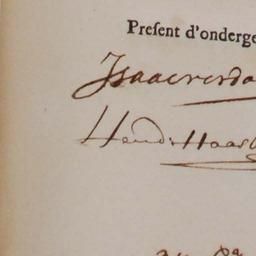 Present d'onderge
Isaac verda
Hend: Haas